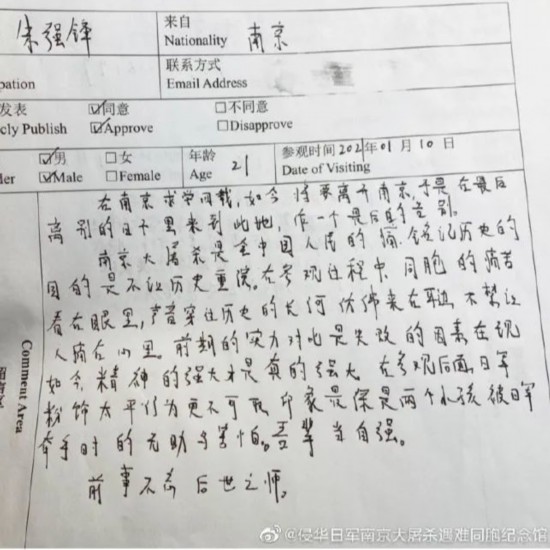 朱强锋 来自 Nationality 南京
pation 联系方式 Email Address
发表 ☑同意 □不同意
cly Publish ☑Approve □Disapprove
☑男 □女 年龄 21 参观时间 2021年01月10日
der ☑Male □Female Age Date of Visiting
在南京求学四载,如今将要离开南京,于是在最后
离别的日子里来到此地,作一个最后的告别。
南京大屠杀是全中国人民的痛,铭记历史的
目的是不让历史重演。在参观过程中,同胞的痛苦
看在眼里,声音穿过历史的长河仿佛来在耳边,不禁让
人痛在心里。前期的实力对比是失败的因素,在现
如今,精神的强大才是真的强大。在参观后面,日军
粉饰太平行为更不可取,印象最深是两个小孩被日军
牵手时的无助与害怕。吾辈当自强。
前事不忘 后世之师。
Comment Area
@侵华日军南京大屠杀遇难同胞纪念馆